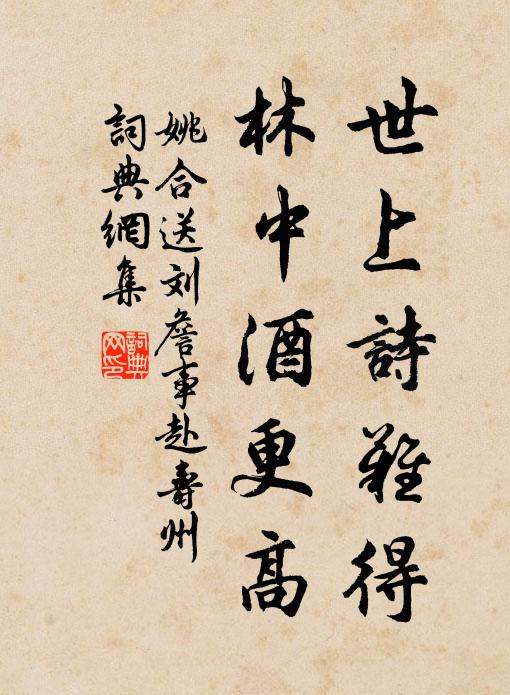 世上詩難得
林中酒更高
姚合送刘詹事赴壽州
詞典網集
詞典網印